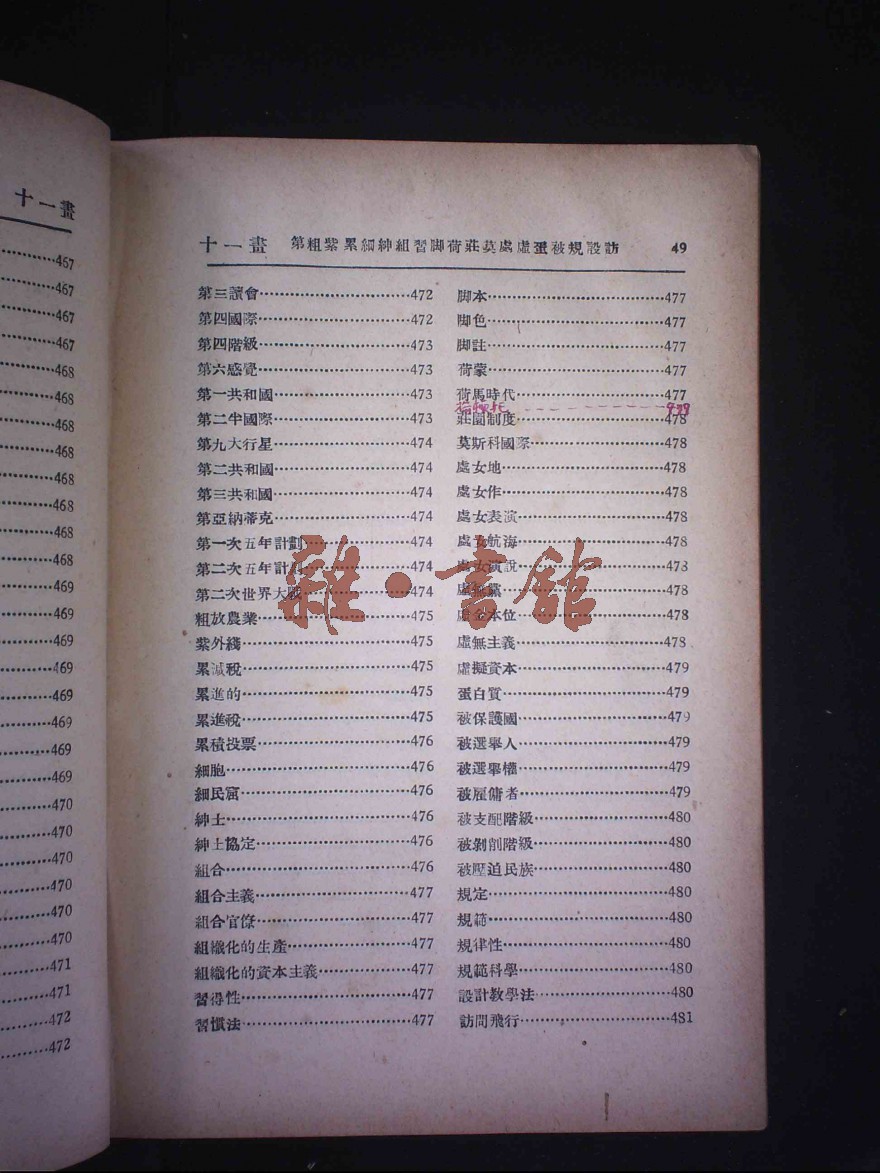 十一畫
467
467
467
467
468
468
468
468
468
468
468
469
469
469
469
469
469
469
470
470
470
470
470
470
471
471
472
472
十一畫 第粗紫累細紳組習脚荷莊莫處虛蛋被規設訪 49
第三讀會 472
第四國際 472
第四階級 473
第六感覺 473
第一共和國 473
第二半國際 473
第九大行星 474
第二共和國 474
第三共和國 474
第亞納蒂克 474
第一次五年計劃 474
第二次五年計劃 474
第二次世界大戰 474
粗放農業 475
紫外綫 475
累減稅 475
累進的 475
累進稅 475
累積投票 476
細胞 476
細民窟 476
紳士 476
紳士協定 476
組合 476
組合主義 477
組合官僚 477
組織化的生產 477
組織化的資本主義 477
習得性 477
習慣法 477
脚本 477
脚色 477
脚註 477
荷蒙 477
荷馬時代 477
莊園制度 478
莫斯科國際 478
處女地 478
處女作 478
處女表演 478
處女航海 478
處女演說 478
虛無黨 478
虛金本位 478
虛無主義 478
虛擬資本 479
蛋白質 479
被保護國 479
被選舉人 479
被選舉權 479
被雇傭者 479
被支配階級 480
被剝削階級 480
被壓迫民族 480
規定 480
規範 480
規律性 480
規範科學 480
設計教學法 480
訪問飛行 481
雜·書館